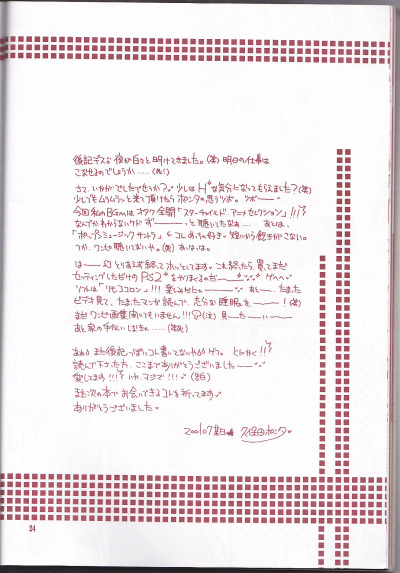 後記デス♡ 夜が白々と明けてきました。(笑) 明日の仕事は
こなせるのでしょうか……(无)
さて、いかがでしたでせうか？ 少しは H な気分になってもらえました？(笑)
少しでもムラムラッと来て頂けたら ホンタの思うツボ。ツボ──
今回 私のBGMは オタク全開 「スターチャイルド アニメセレクション」!!!
なんだかわからないケド ず───っと聴いてたなぁ…… あとは、
「ポップンミュージック サントラ」 ←コレめっちゃ好き。短いから飽きがこない。
つか、ワンセ聴いてないや。(笑) あはは。
は── とりあえず終ってホッとしてます。これ終ったら、買ってまだ
セッティングしただけの PS2 をやりまくるのだ──!
ソフトは 「リモココロン」!!! 楽しみだわ─── あと──、たまった
ビデオ見て、たまったマンガ読んで、充分な睡眠を───!(笑)
まだ ワンセ画集開いてもいません!!! (泣) 見──た──い──
あと家の手伝いしなきゃ……(笑)
とにかく!!
読んで下さった方、ここまでありがとうございました──
愛してます!!! いや、マジで!!! (告白)
また次の本でお会いできるコトを祈ってます。
ありがとうございました。
2001.07 久保田ホンタ
34